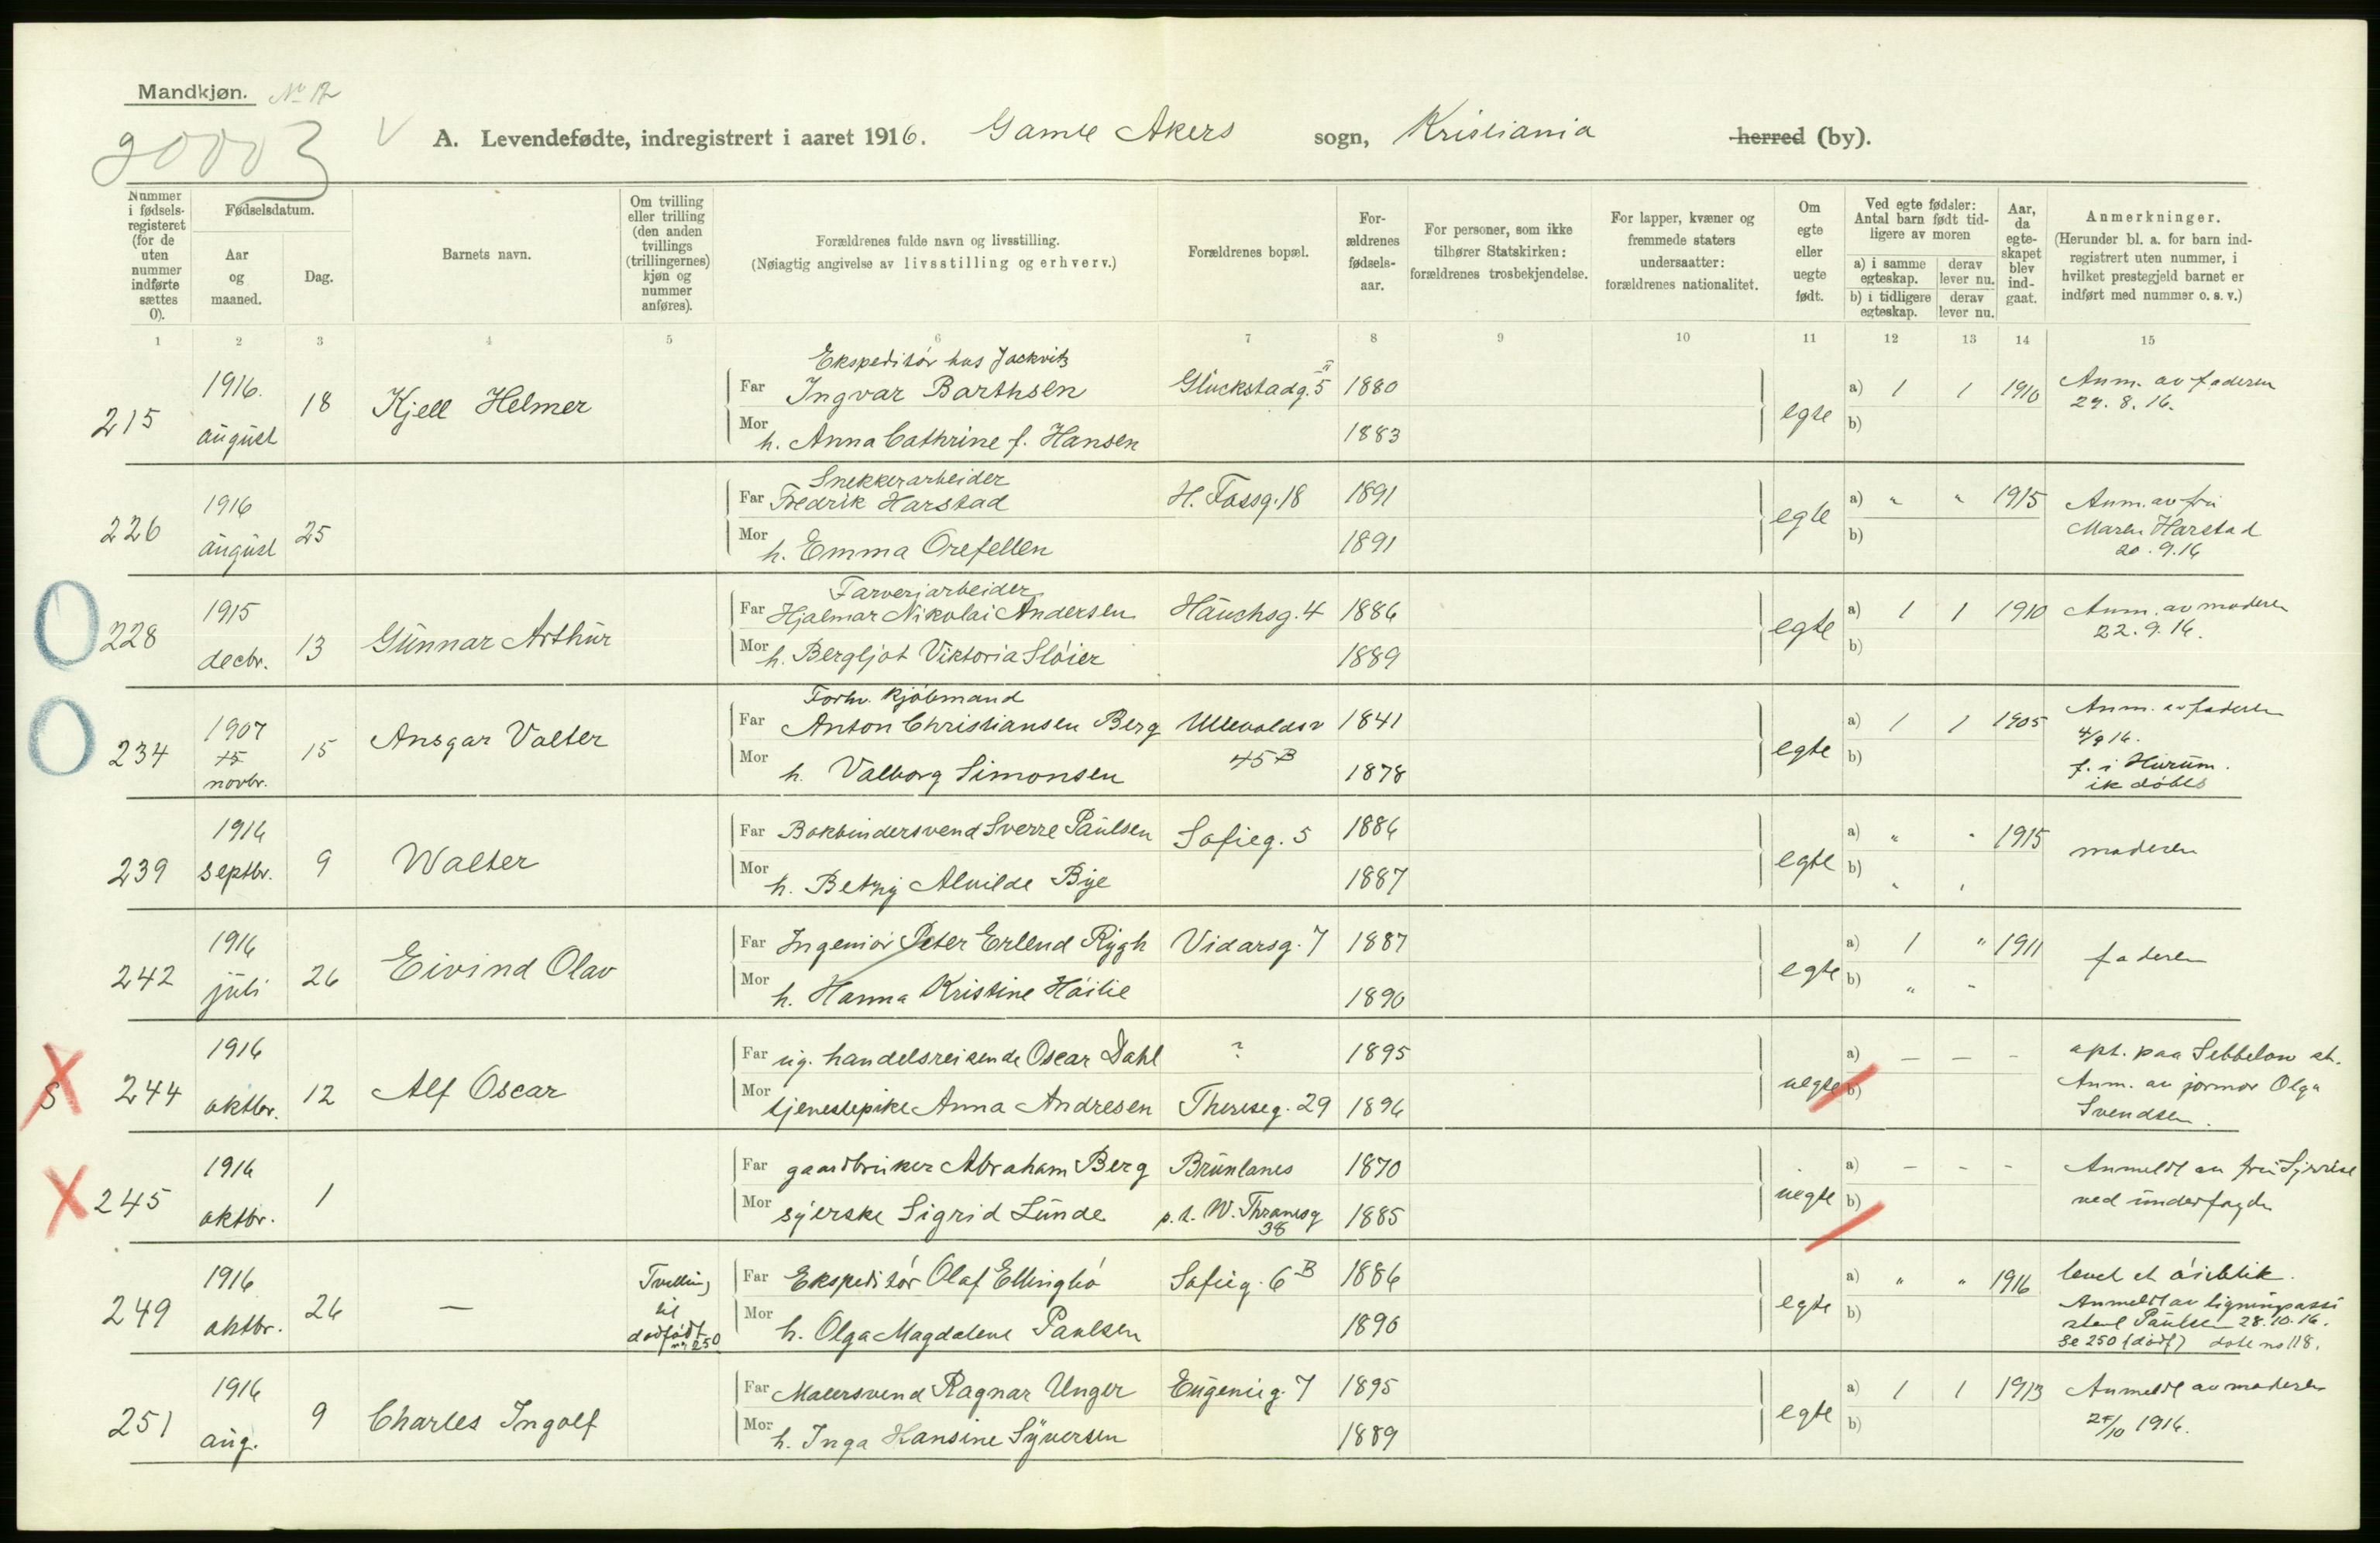 Mandkjøn. No 12
20003 V
A. Levendefødte, indregistrert i aaret 1916. Gamle Akers sogn, Kristiania herred (by).
Nummer i fødselsregisteret (for de uten nummer indførte sættes 0).
Fødselsdatum.
Aar og maaned.
Dag.
Barnets navn.
Om tvilling eller trilling (den anden tvillings (trillingernes) kjøn og nummer anføres).
Forældrenes fulde navn og livsstilling.
(Nøiagtig angivelse av livsstilling og erhverv.)
Forældrenes bopæl.
Forældrenes fødselsaar.
For personer, som ikke tilhører Statskirken: forældrenes trosbekjendelse.
For lapper, kvæner og fremmede staters undersaatter: forældrenes nationalitet.
Om egte eller uegte født.
Ved egte fødsler: Antal barn født tidligere av moren
a) i samme egteskap. derav lever nu.
b) i tidligere egteskap. derav lever nu.
Aar, da egteskapet blev indgaat.
Anmerkninger.
(Herunder bl. a. for barn indregistrert uten nummer, i hvilket prestegjeld barnet er indført med nummer o. s. v.)
1 2 3 4 5 6 7 8 9 10 11 12 13 14 15
215 1916. august 18 Kjell Helmer
Ekspeditör hos Jackwitz
Far Ingvar Barthsen Glückstadg. 5 1880
Mor h. Anna Cathrine f. Hansen 1883
egte a) 1 1 1910 b)
Anm. av faderen
29. 8. 16.
226 1916 august 25
Snekkerarbeider
Far Fredrik Harstad H. Fossg. 18 1891
Mor h. Emma Orefellen 1891
egte a) " " 1915 b)
Anm. av fru
Maren Harstad
20. 9. 16
228 1915 decbr. 13 Gunnar Arthur
Farveriarbeider
Far Hjalmar Nikolai Andersen Hauchsg. 4 1886
Mor h. Bergljot Viktoria Slöier 1889
egte a) 1 1 1910 b)
Anm. av moderen
22. 9. 16.
234 1907 15 novbr. 15 Ansgar Valter
Forhv. kjöbmand
Far Anton Christiansen Berg Ullevoldsv 1841
Mor h. Valborg Simonsen 45 B 1878
egte a) 1 1 1905 b)
Anm. av faderen
4/9 16.
f. i Hurum.
ik döbes
239 1916 septbr. 9 Walter
Far Bokbindersvend Sverre Paulsen Sofieg. 5 1886
Mor h. Betzy Alvilde Bye 1887
egte a) " " 1915 b) " "
moderen
242 1916 juli 26 Eivind Olav
Far Ingeniör Peter Erlend Rygh Vidarsg. 7 1887
Mor h. Hanna Kristine Höilie 1890
egte a) 1 " 1911 b) " "
faderen
S 244 1916 oktbr. 12 Alf Oscar
Far ug. handelsreisende Oscar Dahl ? 1895
Mor tjenestepike Anna Andresen Thereseg. 29 1896
uegte a) – – – b)
opt. paa Sebbelow st.
Anm. av jormor Olga
Svendsen.
245 1916 oktbr. 1
Far gaardbruker Abraham Berg Brunlanes 1870
Mor syerske Sigrid Lunde p. t. W. Thranesg 38 1885
uegte a) – – – b)
Anmeldt av fru
ved underfogden
249 1916 oktbr. 26 —
Tvilling til dødfødt no 250
Far Ekspeditör Olaf Ellingbö Sofieg. 6 B 1886
Mor h. Olga Magdalene Paulsen 1890
egte a) " " 1916 b)
levet et öieblik.
Anmeldt av ligningsassi
stent Paulsen 28. 10. 16.
Se 250 (dödf) döde no 118.
251 1916 aug. 9 Charles Ingolf
Far Malersvend Ragnar Unger Eugenieg. 7 1895
Mor h. Inga Hansine Syversen 1889
egte a) 1 1 1913 b)
Anmeldt av moderen
25/10 1916.